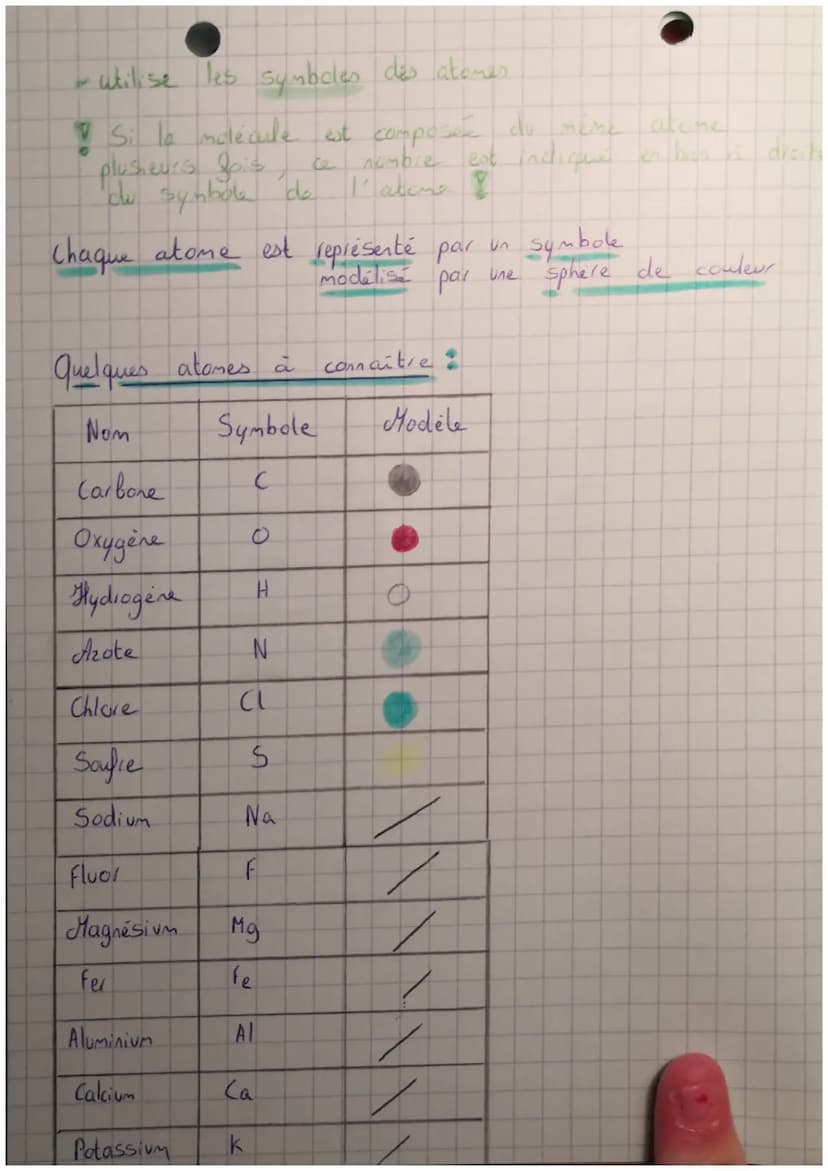 - utilise les symboles des atomes
! Si la molécule est composée du même atome
plusieurs fois, ce nombre est indiqué en bas à droite
du symbole de l'atome !
Chaque atome est représenté par un symbole
modélisé par une sphère de couleur
Quelques atomes à connaître :
Nom Symbole Modèle
Carbone C
Oxygène O
Hydrogène H
Azote N
Chlore Cl
Soufre S
Sodium Na
Fluor F
Magnésium Mg
Fer Fe
Aluminium Al
Calcium Ca
Potassium K